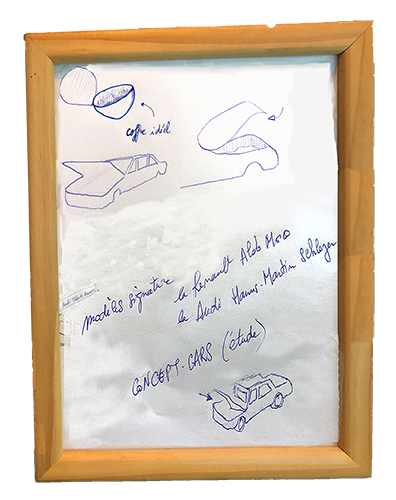 coffre idéal
modèles signature
la Renault Aldo Moro
la Audi Hanns-Martin Schleyer
CONCEPT-CARS (étude)